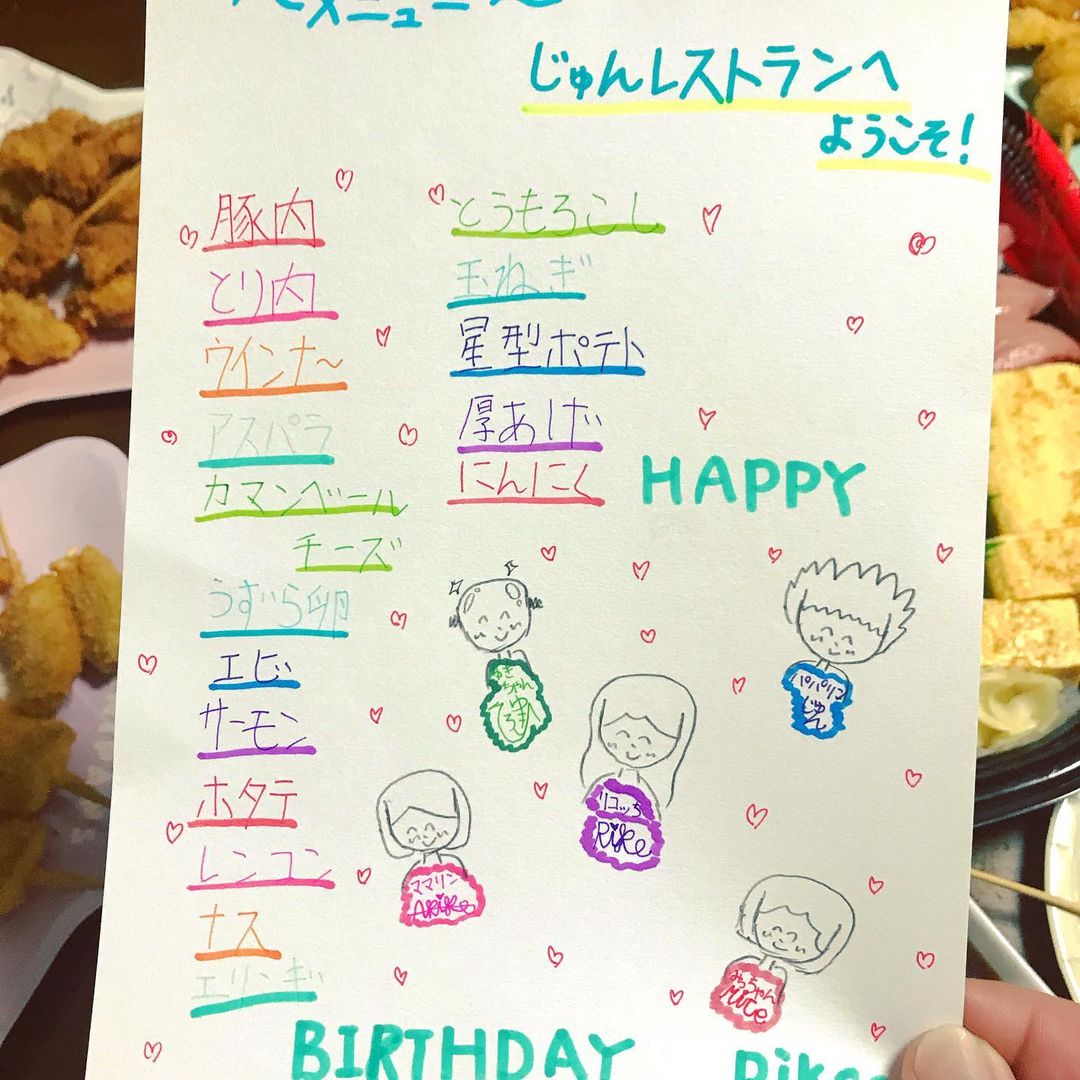 メニュー
じゅんレストランへ
ようこそ!
豚内
とり内
ウインナ～
アスパラ
カマンベール
チーズ
うずら卵
エビ
サーモン
ホタテ
レンコン
ナス
エリンギ
とうもろこし
玉ねぎ
星型ポテト
厚あげ
にんにく
HAPPY
ゆき
ちゃん
パパリン
じゅ
ん
リコッち
Rike
ママリン
みっちゃん
BIRTHDAY
Rike